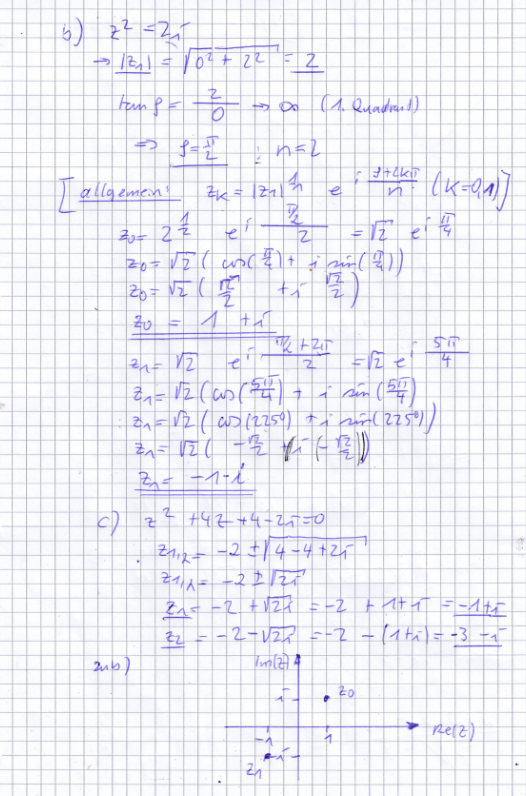 b) z² = 2i
→ |z₁| = √(0² + 2²) = 2
tan φ = 2/0 → ∞ (1. Quadrant)
⇒ φ = π/2 ; n = 2
[allgemein: z_K = |z₁|^(1/n) e^(i (φ+2kπ)/n) (K=0,1)]
z₀ = 2^(1/2) e^(i (π/2)/2) = √2 e^(i π/4)
z₀ = √2 ( cos(π/4) + i sin(π/4))
z₀ = √2 ( √2/2 + i √2/2 )
z₀ = 1 + i
z₁ = √2 e^(i (π/2 + 2π)/2) = √2 e^(i 5π/4)
z₁ = √2 (cos(5π/4) + i sin(5π/4)
z₁ = √2 ( cos(225°) + i sin(225°))
z₁ = √2 ( -√2/2 + (i (-√2/2))
z₁ = -1-i
c) z² + 4z + 4 - 2i = 0
z₁,₂ = -2 ± √(4-4+2i)
z₁,₂ = -2 ± √(2i)
z₁ = -2 + √(2i) = -2 + 1+i = -1+i
z₂ = -2 - √(2i) = -2 - (1+i) = -3 - i
zu b)
Im(z)
i
z₀
-1
1
Re(z)
-i
z₁